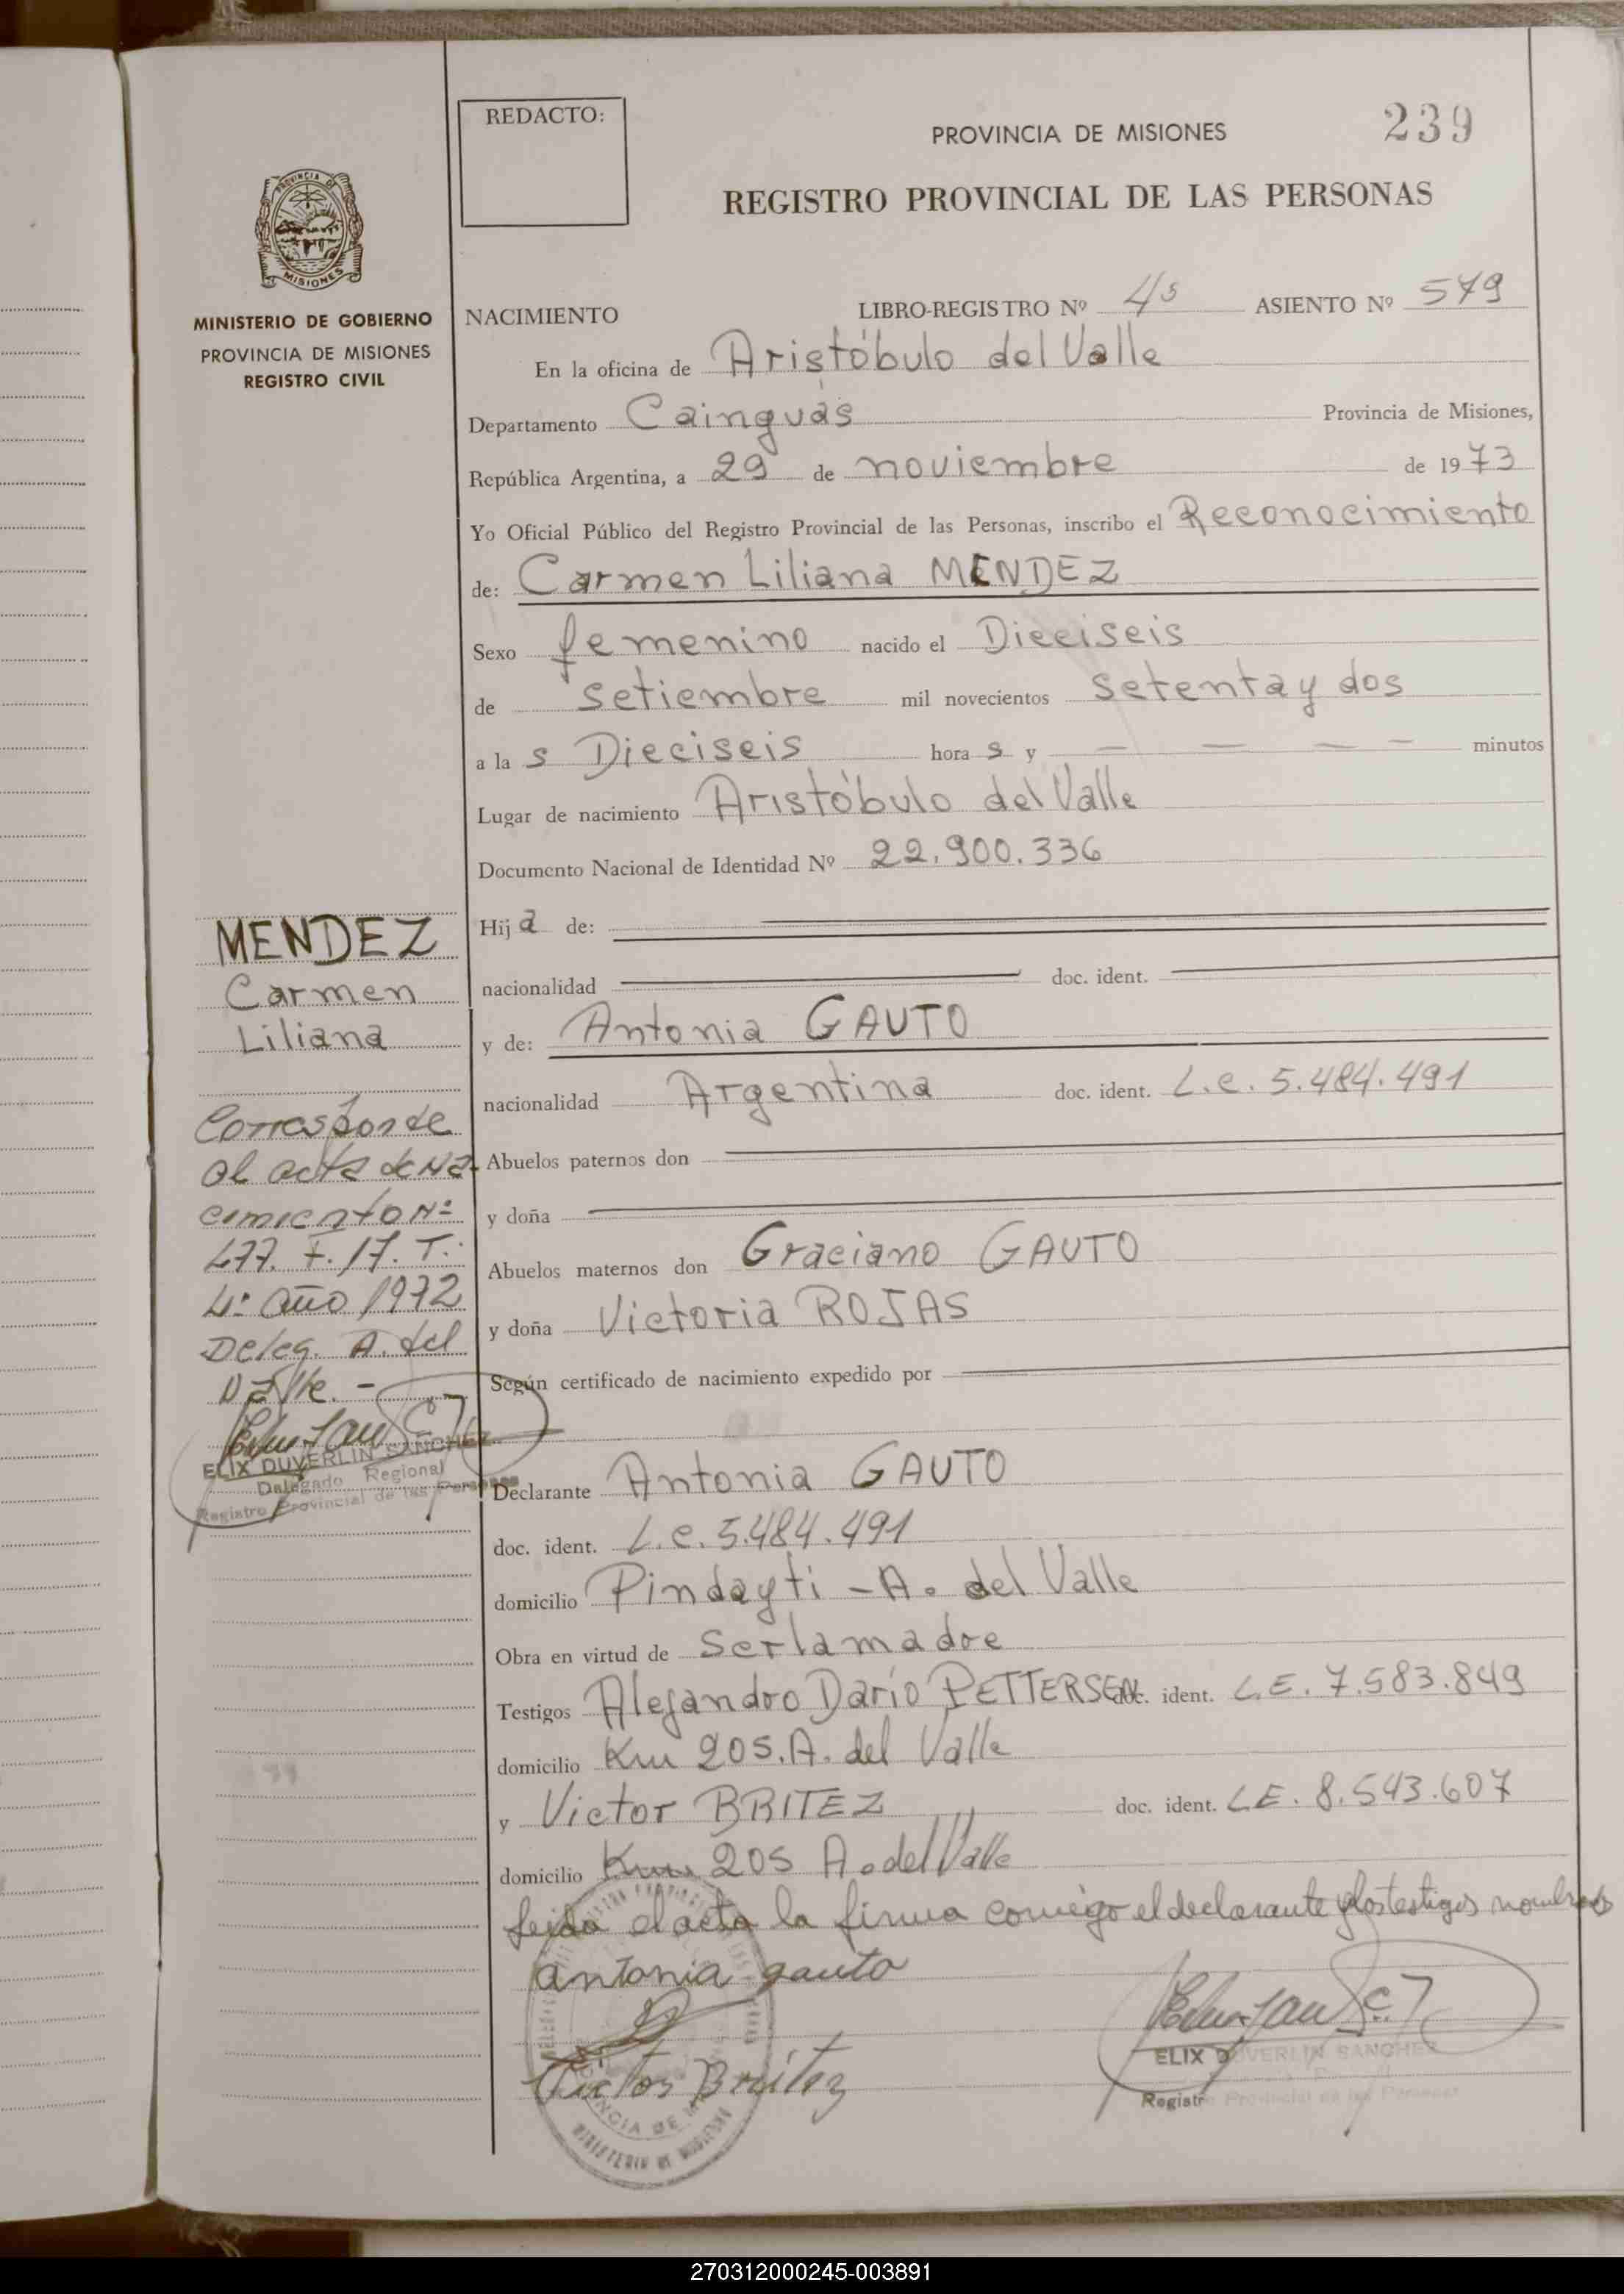 REDACTO:
PROVINCIA DE MISIONES
239
REGISTRO PROVINCIAL DE LAS PERSONAS
PROVINCIA DE
MISIONES
MINISTERIO DE GOBIERNO
PROVINCIA DE MISIONES
REGISTRO CIVIL
NACIMIENTO LIBRO-REGISTRO Nº 4s ASIENTO Nº 579
En la oficina de Aristóbulo del Valle
Departamento Cainguás Provincia de Misiones,
República Argentina, a 29 de noviembre de 1973
Yo Oficial Público del Registro Provincial de las Personas, inscribo el Reconocimiento
de: Carmen Liliana MENDEZ
Sexo femenino nacido el Dieciseis
de setiembre mil novecientos setenta y dos
a la s Dieciseis hora s y — — — — minutos
Lugar de nacimiento Aristóbulo del Valle
Documento Nacional de Identidad Nº 22.900.336
Hij a de:
nacionalidad doc. ident.
y de: Antonia GAUTO
nacionalidad Argentina doc. ident. L.c. 5.484.491
Abuelos paternos don
y doña
Abuelos maternos don Graciano GAUTO
y doña Victoria ROJAS
Según certificado de nacimiento expedido por
Declarante Antonia GAUTO
doc. ident. L.c. 5.484.491
domicilio Pindayti - A. del Valle
Obra en virtud de ser la madre
Testigos Alejandro Darío PETTERSEN doc. ident. L.E. 7.583.849
domicilio Km 205. A. del Valle
y Victor BRITEZ doc. ident. L.E. 8.543.607
domicilio Km 205 A. del Valle
leida el acta la firma conmigo el declarante y los testigos nombrados
antonia gauto
Victor Britez
ELIX DUVERLIN SANCHEZ
Registro Provincial de las Personas
MENDEZ
Carmen
Liliana
Corresponde
al acta de Na-
cimiento Nº
477. F. 17. T.:
4º año 1972
Deleg. A. del
Valle. -
ELIX DUVERLIN SANCHEZ
Delegado Regional
Registro Provincial de las Personas
270312000245-003891